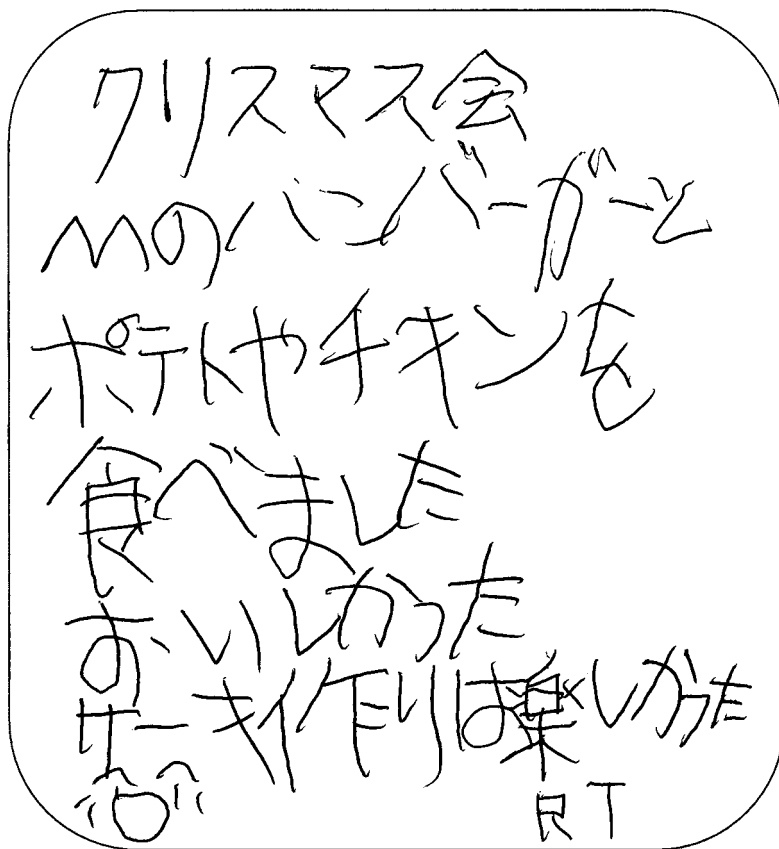 クリスマス会
Mのハンバーガーと
ポテトやチキンを
食べました
おいしかった
ケーキ作りは楽しかった
RT